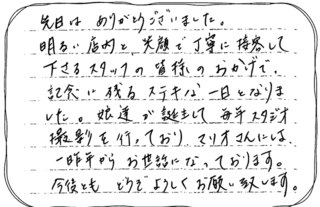 先日は ありがとうございました。
明るい店内と、笑顔で丁寧に接客して
下さるスタッフの皆様のおかげで、
記念に残るステキな一日となりま
した。娘達が誕生して毎年スタジオ
撮影を行っており、マリオさんには、
一昨年からお世話になっております。
今後とも どうぞよろしくお願い致します。